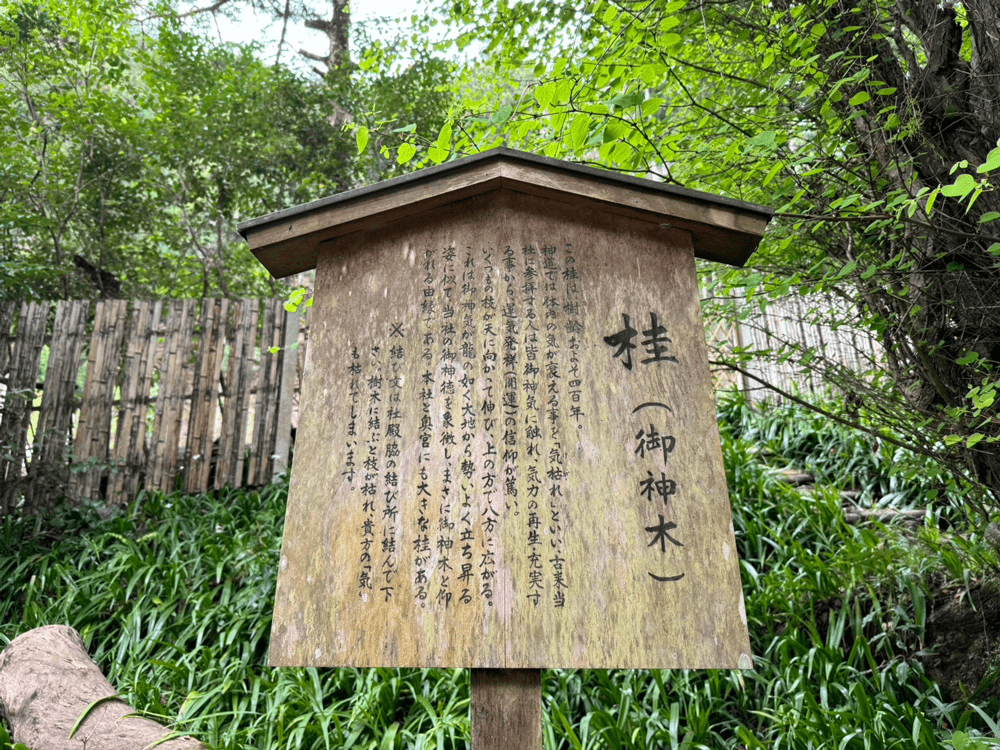 桂（御神木）
この桂は、樹齢およそ四百年。
神道では体内の気が衰える事を「気枯れ」といい、古来当
社に参拝する人は皆御神気に触れ、気力の再生・充実す
る事から、運気発祥（開運）の信仰が篤い。
いくつもの枝が天に向かって伸び、上の方で八方に広がる。
これは御神気が龍の如く大地から勢いよく立ち昇る
姿に似て、当社の御神徳を象徴し、まさに御神木と仰
がれる由縁である。本社と奥宮にも大きな桂がある。
※結び文は社殿脇の結び所に結んで下
さい。樹木に結ぶと枝が枯れ、貴方の「気」
も枯れてしまいます